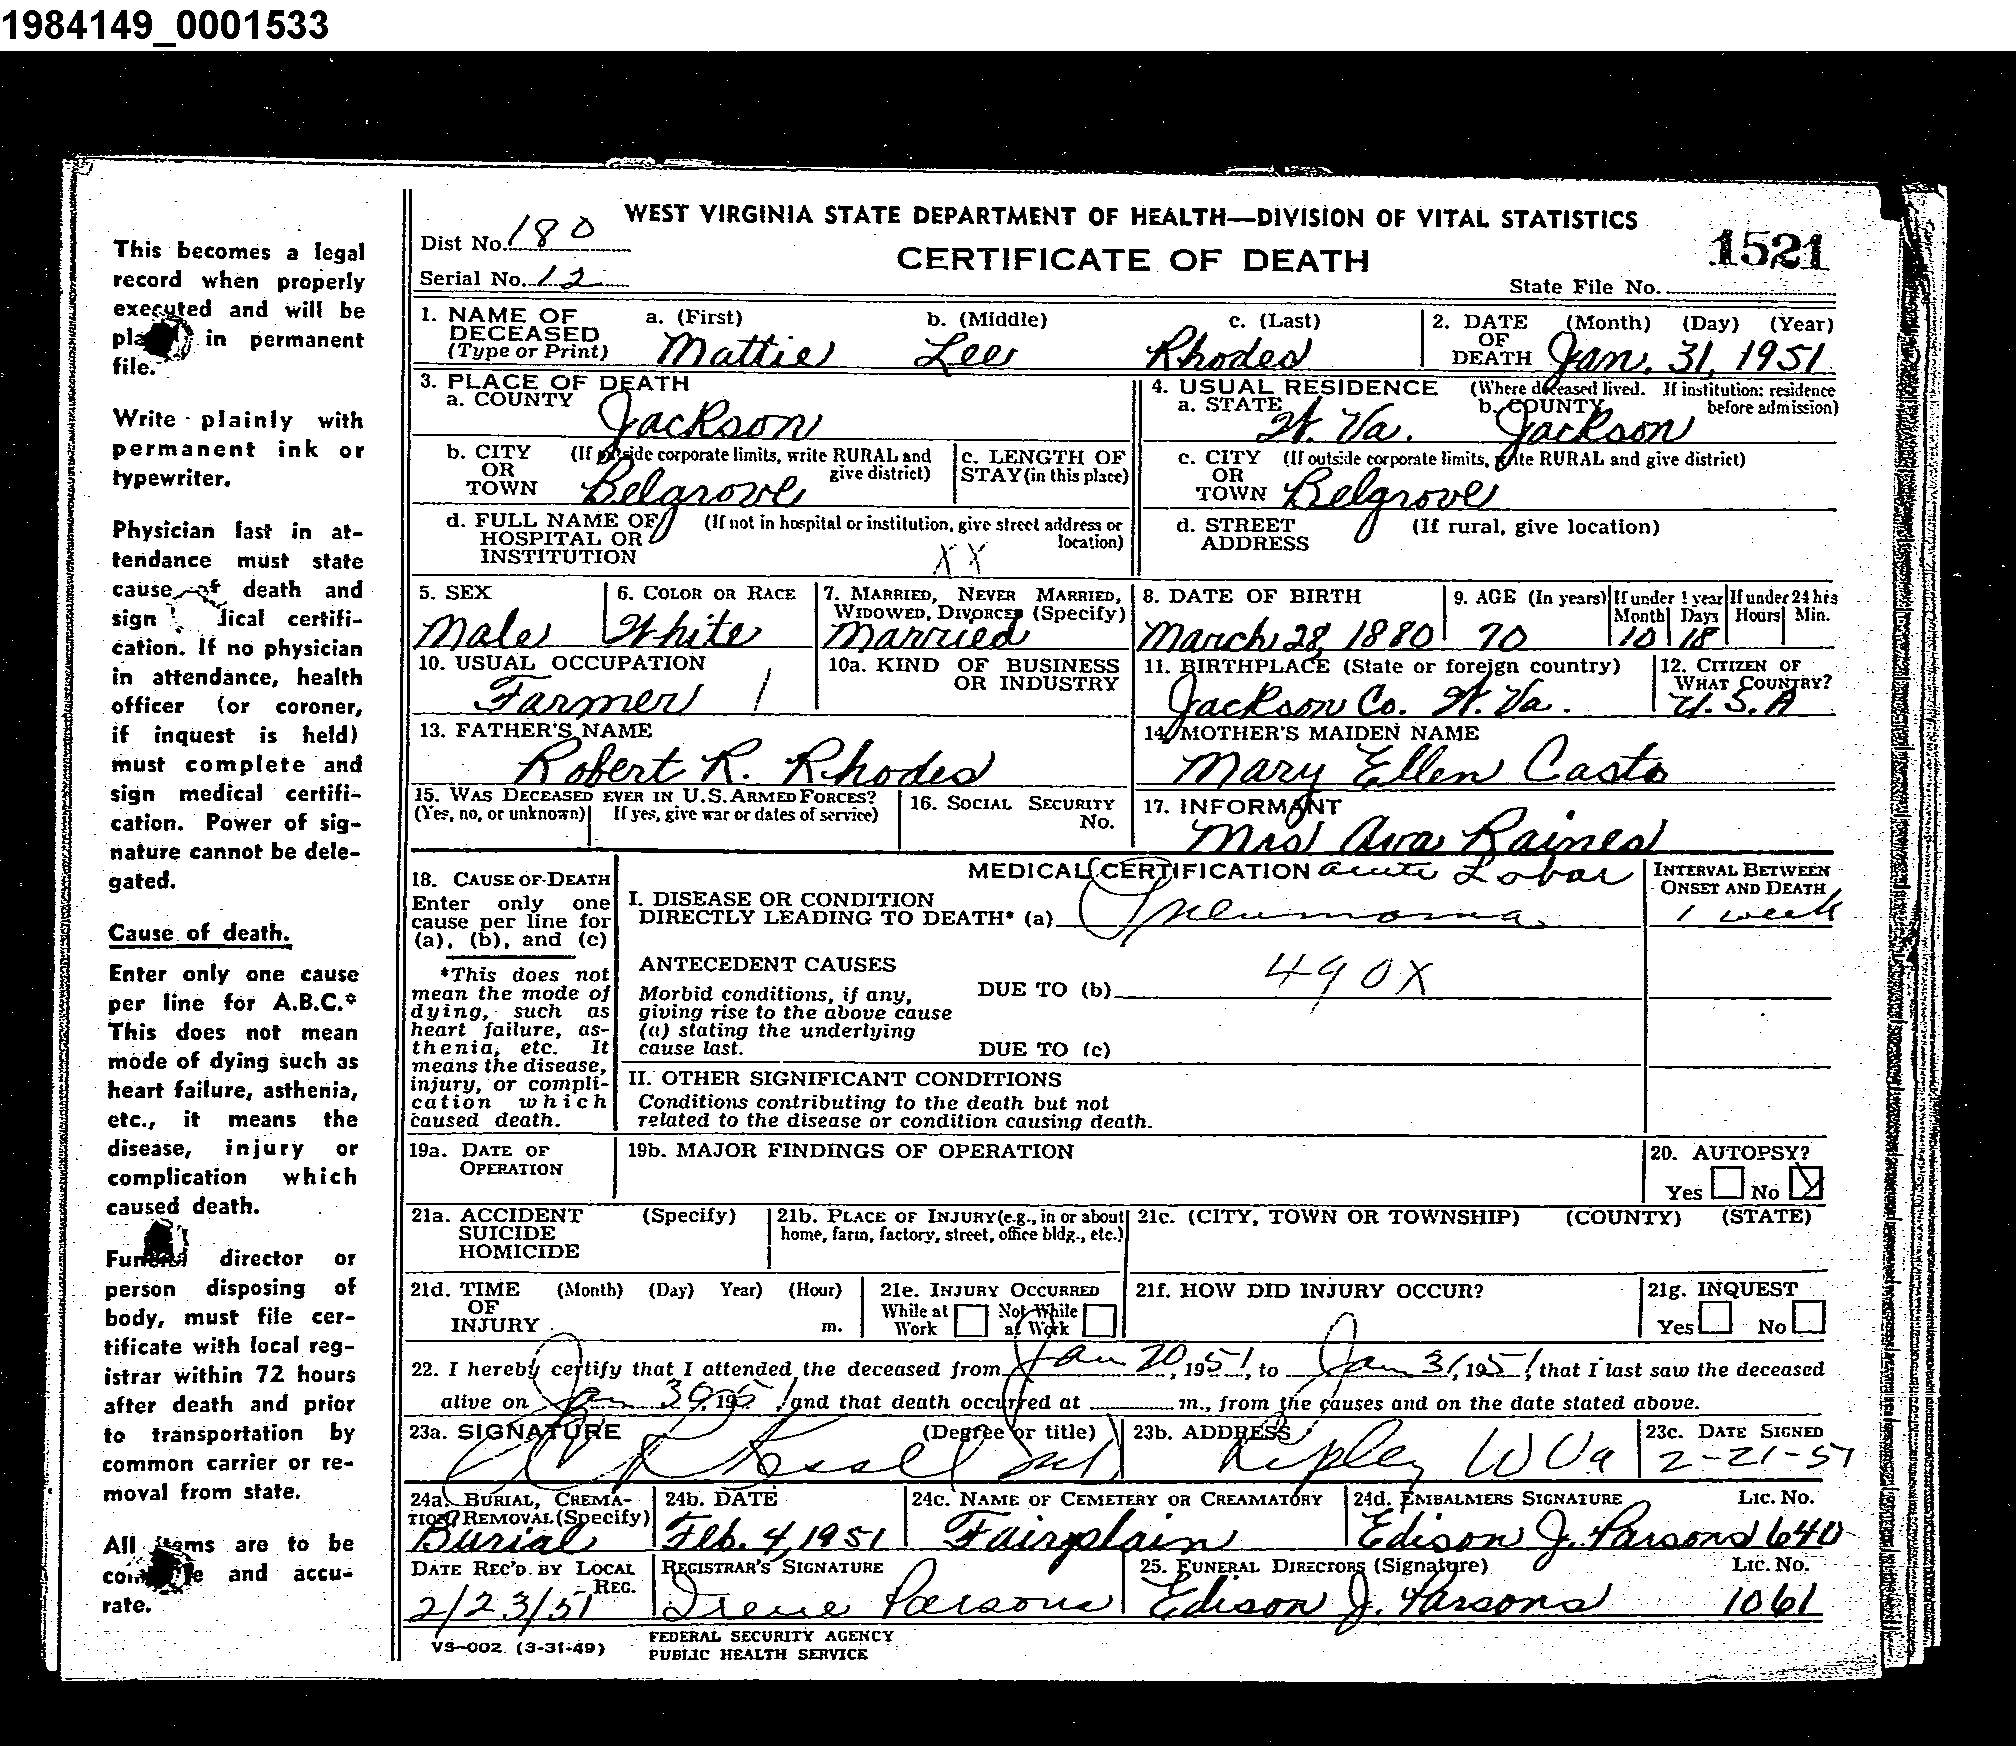 1984149_0001533
This becomes a legal
record when properly
executed and will be
in permanent
file.
Write plainly with
permanent ink or
typewriter.
Physician last in at-
tendance must state
cause of death and
sign dical certifi-
cation. If no physician
in attendance, health
officer (or coroner,
if inquest is held)
must complete and
sign medical certifi-
cation. Power of sig-
nature cannot be dele-
gated.
Cause of death.
Enter only one cause
per line for A.B.C.*
This does not mean
mode of dying such as
heart failure, asthenia,
etc., it means the
disease, injury or
complication which
caused death.
Funeral director or
person disposing of
body, must file cer-
tificate with local reg-
istrar within 72 hours
after death and prior
to transportation by
common carrier or re-
moval from state.
All items are to be
and accu-
rate.
WEST VIRGINIA STATE DEPARTMENT OF HEALTH—DIVISION OF VITAL STATISTICS
Dist No. 180
CERTIFICATE OF DEATH
1521
Serial No. 12
State File No.
1. NAME OF DECEASED (Type or Print) a. (First) b. (Middle) c. (Last)
Mattie Lee Rhodes
2. DATE OF DEATH (Month) (Day) (Year)
Jan. 31, 1951
3. PLACE OF DEATH
a. COUNTY Jackson
4. USUAL RESIDENCE (Where deceased lived. If institution: residence before admission)
a. STATE W. Va. b. COUNTY Jackson
b. CITY OR TOWN (If outside corporate limits, write RURAL and give district)
Belgrove
c. LENGTH OF STAY (in this place)
c. CITY OR TOWN (If outside corporate limits, write RURAL and give district)
Belgrove
d. FULL NAME OF HOSPITAL OR INSTITUTION (If not in hospital or institution, give street address or location)
XX
d. STREET ADDRESS (If rural, give location)
5. SEX
Male
6. COLOR OR RACE
White
7. MARRIED, NEVER MARRIED, WIDOWED, DIVORCED (Specify)
Married
8. DATE OF BIRTH
March 28, 1880
9. AGE (In years)
70
If under 1 year Month Days
10 18
If under 24 hrs Hours Min.
10. USUAL OCCUPATION
Farmer /
10a. KIND OF BUSINESS OR INDUSTRY
11. BIRTHPLACE (State or foreign country)
Jackson Co. W. Va.
12. CITIZEN OF WHAT COUNTRY?
U.S.A
13. FATHER'S NAME
Robert R. Rhodes
14. MOTHER'S MAIDEN NAME
Mary Ellen Casto
15. WAS DECEASED EVER IN U.S. ARMED FORCES?
(Yes, no, or unknown) If yes, give war or dates of service)
16. SOCIAL SECURITY No.
17. INFORMANT
Mrs Ava Raines
18. CAUSE OF DEATH
Enter only one
cause per line for
(a), (b), and (c)
*This does not
mean the mode of
dying, such as
heart failure, as-
thenia, etc. It
means the disease,
injury, or compli-
cation which
caused death.
MEDICAL CERTIFICATION
acute Lobar
I. DISEASE OR CONDITION
DIRECTLY LEADING TO DEATH* (a) Pneumonia
INTERVAL BETWEEN ONSET AND DEATH
1 week
ANTECEDENT CAUSES
Morbid conditions, if any,
giving rise to the above cause
(a) stating the underlying
cause last.
DUE TO (b) 490X
DUE TO (c)
II. OTHER SIGNIFICANT CONDITIONS
Conditions contributing to the death but not
related to the disease or condition causing death.
19a. DATE OF OPERATION
19b. MAJOR FINDINGS OF OPERATION
20. AUTOPSY?
Yes No
21a. ACCIDENT SUICIDE HOMICIDE (Specify)
21b. PLACE OF INJURY (e.g., in or about home, farm, factory, street, office bldg., etc.)
21c. (CITY, TOWN OR TOWNSHIP) (COUNTY) (STATE)
21d. TIME OF INJURY (Month) (Day) Year) (Hour) m.
21e. INJURY OCCURRED
While at Work Not While at Work
21f. HOW DID INJURY OCCUR?
21g. INQUEST
Yes No
22. I hereby certify that I attended the deceased from Jan 20, 1951, to Jan 31, 1951, that I last saw the deceased
alive on Jan 30, 1951, and that death occurred at m., from the causes and on the date stated above.
23a. SIGNATURE (Degree or title)
23b. ADDRESS
Ripley W Va
23c. DATE SIGNED
2-21-51
24a. BURIAL, CREMA-
TION? REMOVAL (Specify)
Burial
24b. DATE
Feb. 4, 1951
24c. NAME OF CEMETERY OR CREAMATORY
Fairplain
24d. EMBALMERS SIGNATURE LIC. NO.
Edison J. Parsons 640
DATE REC'D. BY LOCAL REG.
2/23/51
REGISTRAR'S SIGNATURE
Irene Parsons
25. FUNERAL DIRECTORS (Signature) LIC. NO.
Edison J. Parsons 1061
VS—002 (3-31-49)
FEDERAL SECURITY AGENCY
PUBLIC HEALTH SERVICE